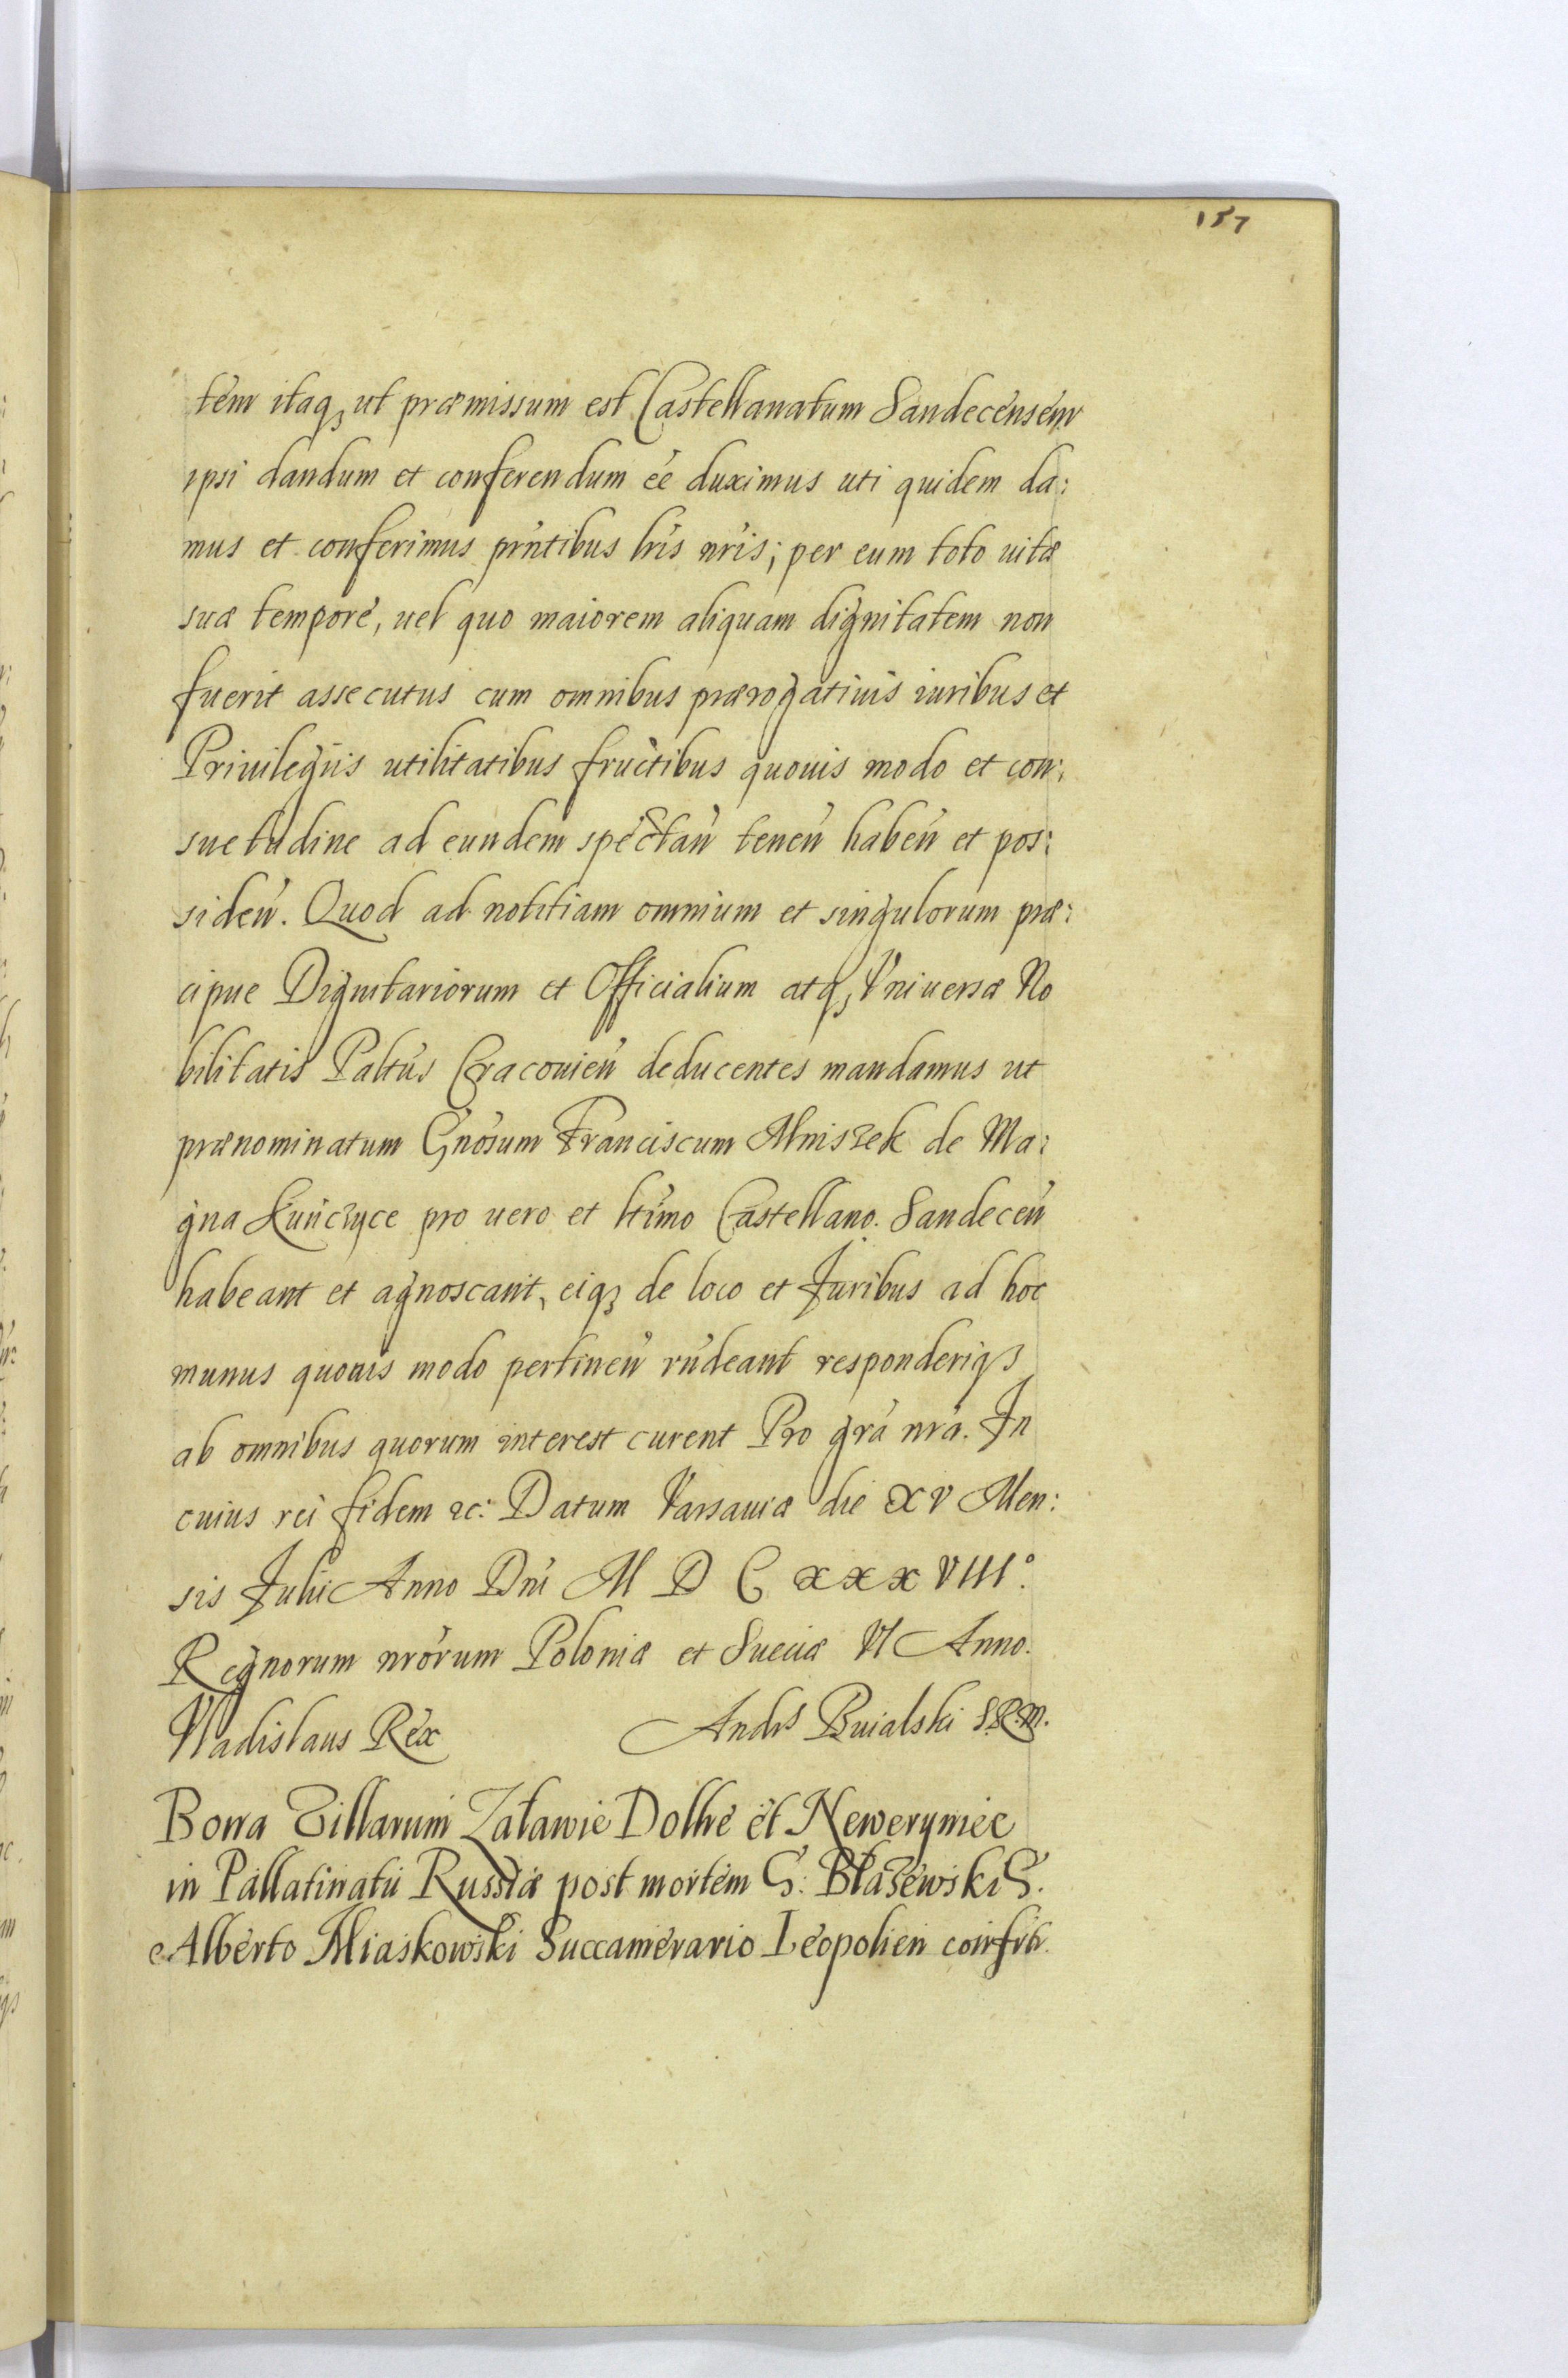 157
tem itaq₃ ut præmissum est Castellanatum Sandecensem
ipsi dandum et conferendum ée duximus uti quidem da:
mus et conferimus prńtibus lris nris; per eum toto uitæ
suæ tempore, uel quo maiorem aliquam dignitatem non
fuerit assecutus cum omnibus prærogatiuis iuribus et
Priuilegijs utilitatibus fructibus quouis modo et con:
suetudine ad eundem spectań teneń habeń et pos:
sideń. Quod ad notitiam omnium et singulorum præ:
cipue Dignitariorum et Officialium atq₃ Vniuersæ No
bilitatis Paltus Cracouień deducentes mandamus ut
prænominatum Gnosum Franciscum Mniszek de Ma:
gna Kuńczyce pro uero et ltimo Castellano Sandeceń
habeant et agnoscant, eiq₃ de loco et Juribus ad hoc
munus quouis modo pertineń rńdeant responderiq₃
ab omnibus quorum interest curent Pro gra nra. In
cuius rei fidem ꝛc: Datum Varsauiæ die XV Men:
sis Julii Anno Dni M D C XXX VIII°.
Regnorum nrorum Poloniæ et Sueciæ VI Anno.
Vladislaus Rex Andrs Buialski S.R.M.
Bona Villarum Załawie Dolhe et Neweryniec
in Pallatinatu Russiæ post mortem G: Błażewski G.
Alberto Miaskowski Succamerario Leopolień confrtr.